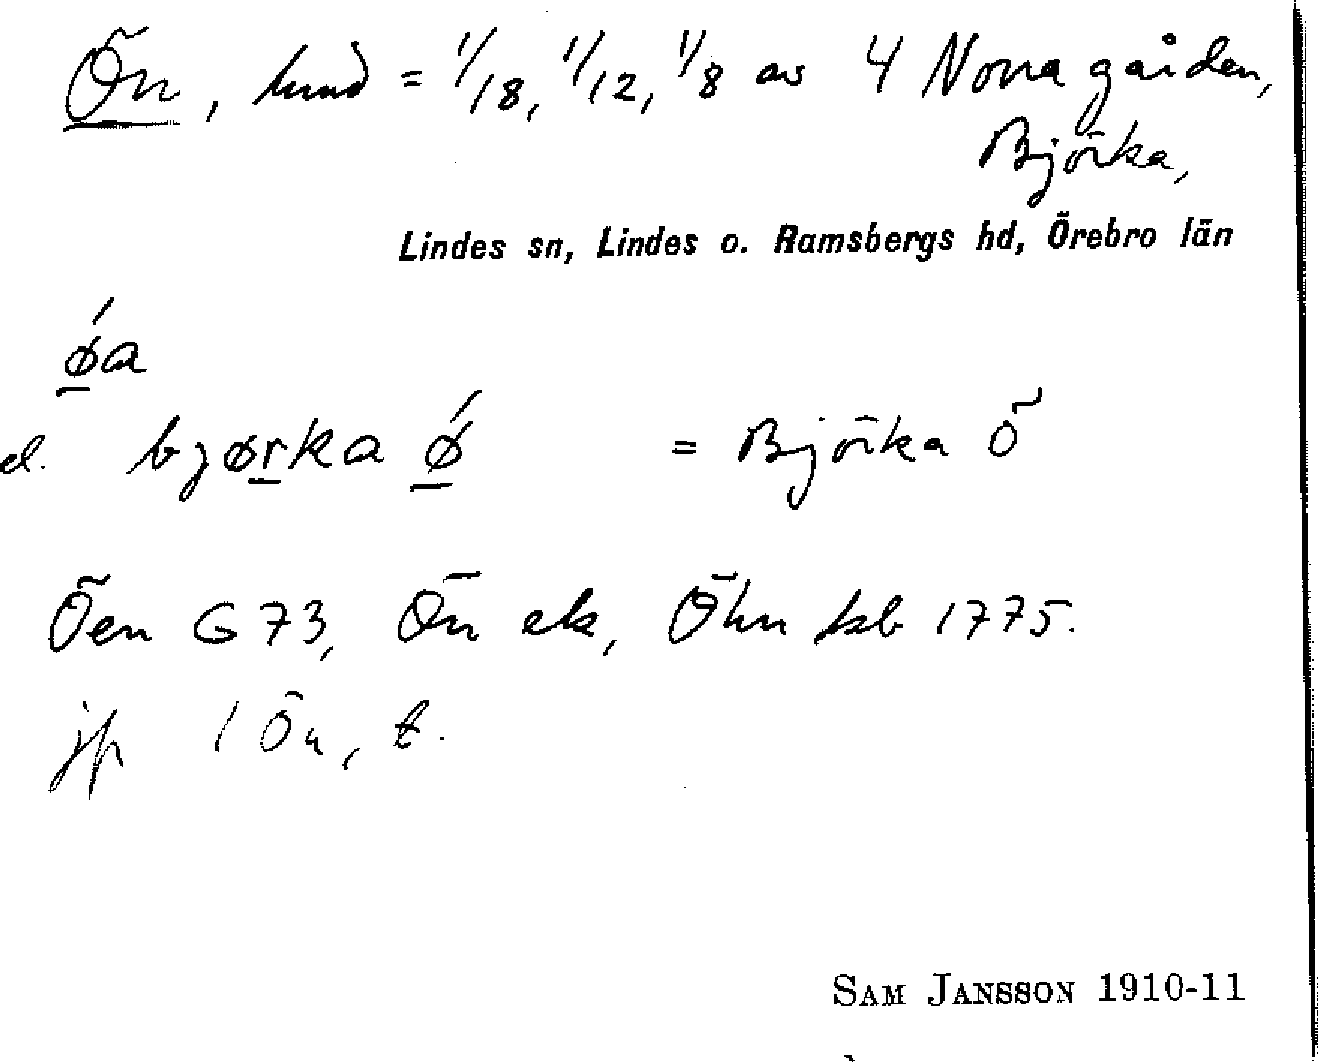 Ön, hmd = 1/18, 1/12, 1/8 av 4 Norra gården,
Björka,
Lindes sn, Lindes o. Ramsbergs hd, Örebro län
ǿa
el. bjørka ǿ = Björka ö
Öen G 73, Ön ek, Öhn hb 1775.
jfr 1 Ön, t.
SAM JANSSON 1910-11